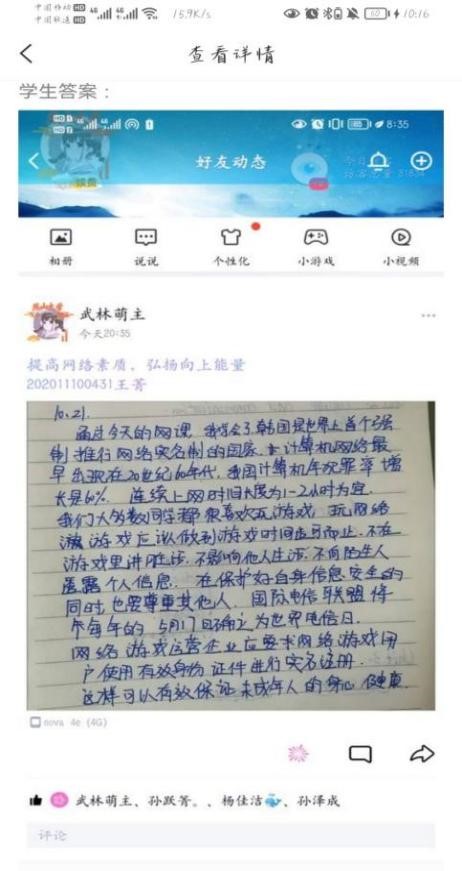 中国移动 HD 4G 4G 15.9K/s 60 10:16
中国联通 HD
查看详情
学生答案：
HD 1 4G 4G 8:35
HD 2
好友动态
今日
访客总量 31834
相册 说说 个性化 小游戏 小视频
武林萌主
今天20:35
提高网络素质，弘扬向上能量
202011100431王菁
10.21.
通过今天的网课，我学会了韩国是世界上首个强
制推行网络实名制的国家，计算机网络最
早出现在20世纪60年代，我国计算机年犯罪率增
长是60%. 连续上网时间长度为1-2小时为宜.
我们大多数同学都很喜欢玩游戏，玩网络
游戏应该做到游戏时间适可而止，不在
游戏里讲脏话，不影响他人生活，不向陌生人
透露个人信息. 在保护好自身信息安全的
同时也要尊重其他人. 国际电信联盟将
每年的5月17日确定为世界电信日.
网络游戏运营企业应要求网络游戏用
户使用有效身份证件进行实名注册.
这样可以有效保证未成年人的身心健康.
nova 4e (4G)
武林萌主、孙跃菁。、杨佳洁、孙泽成
评论